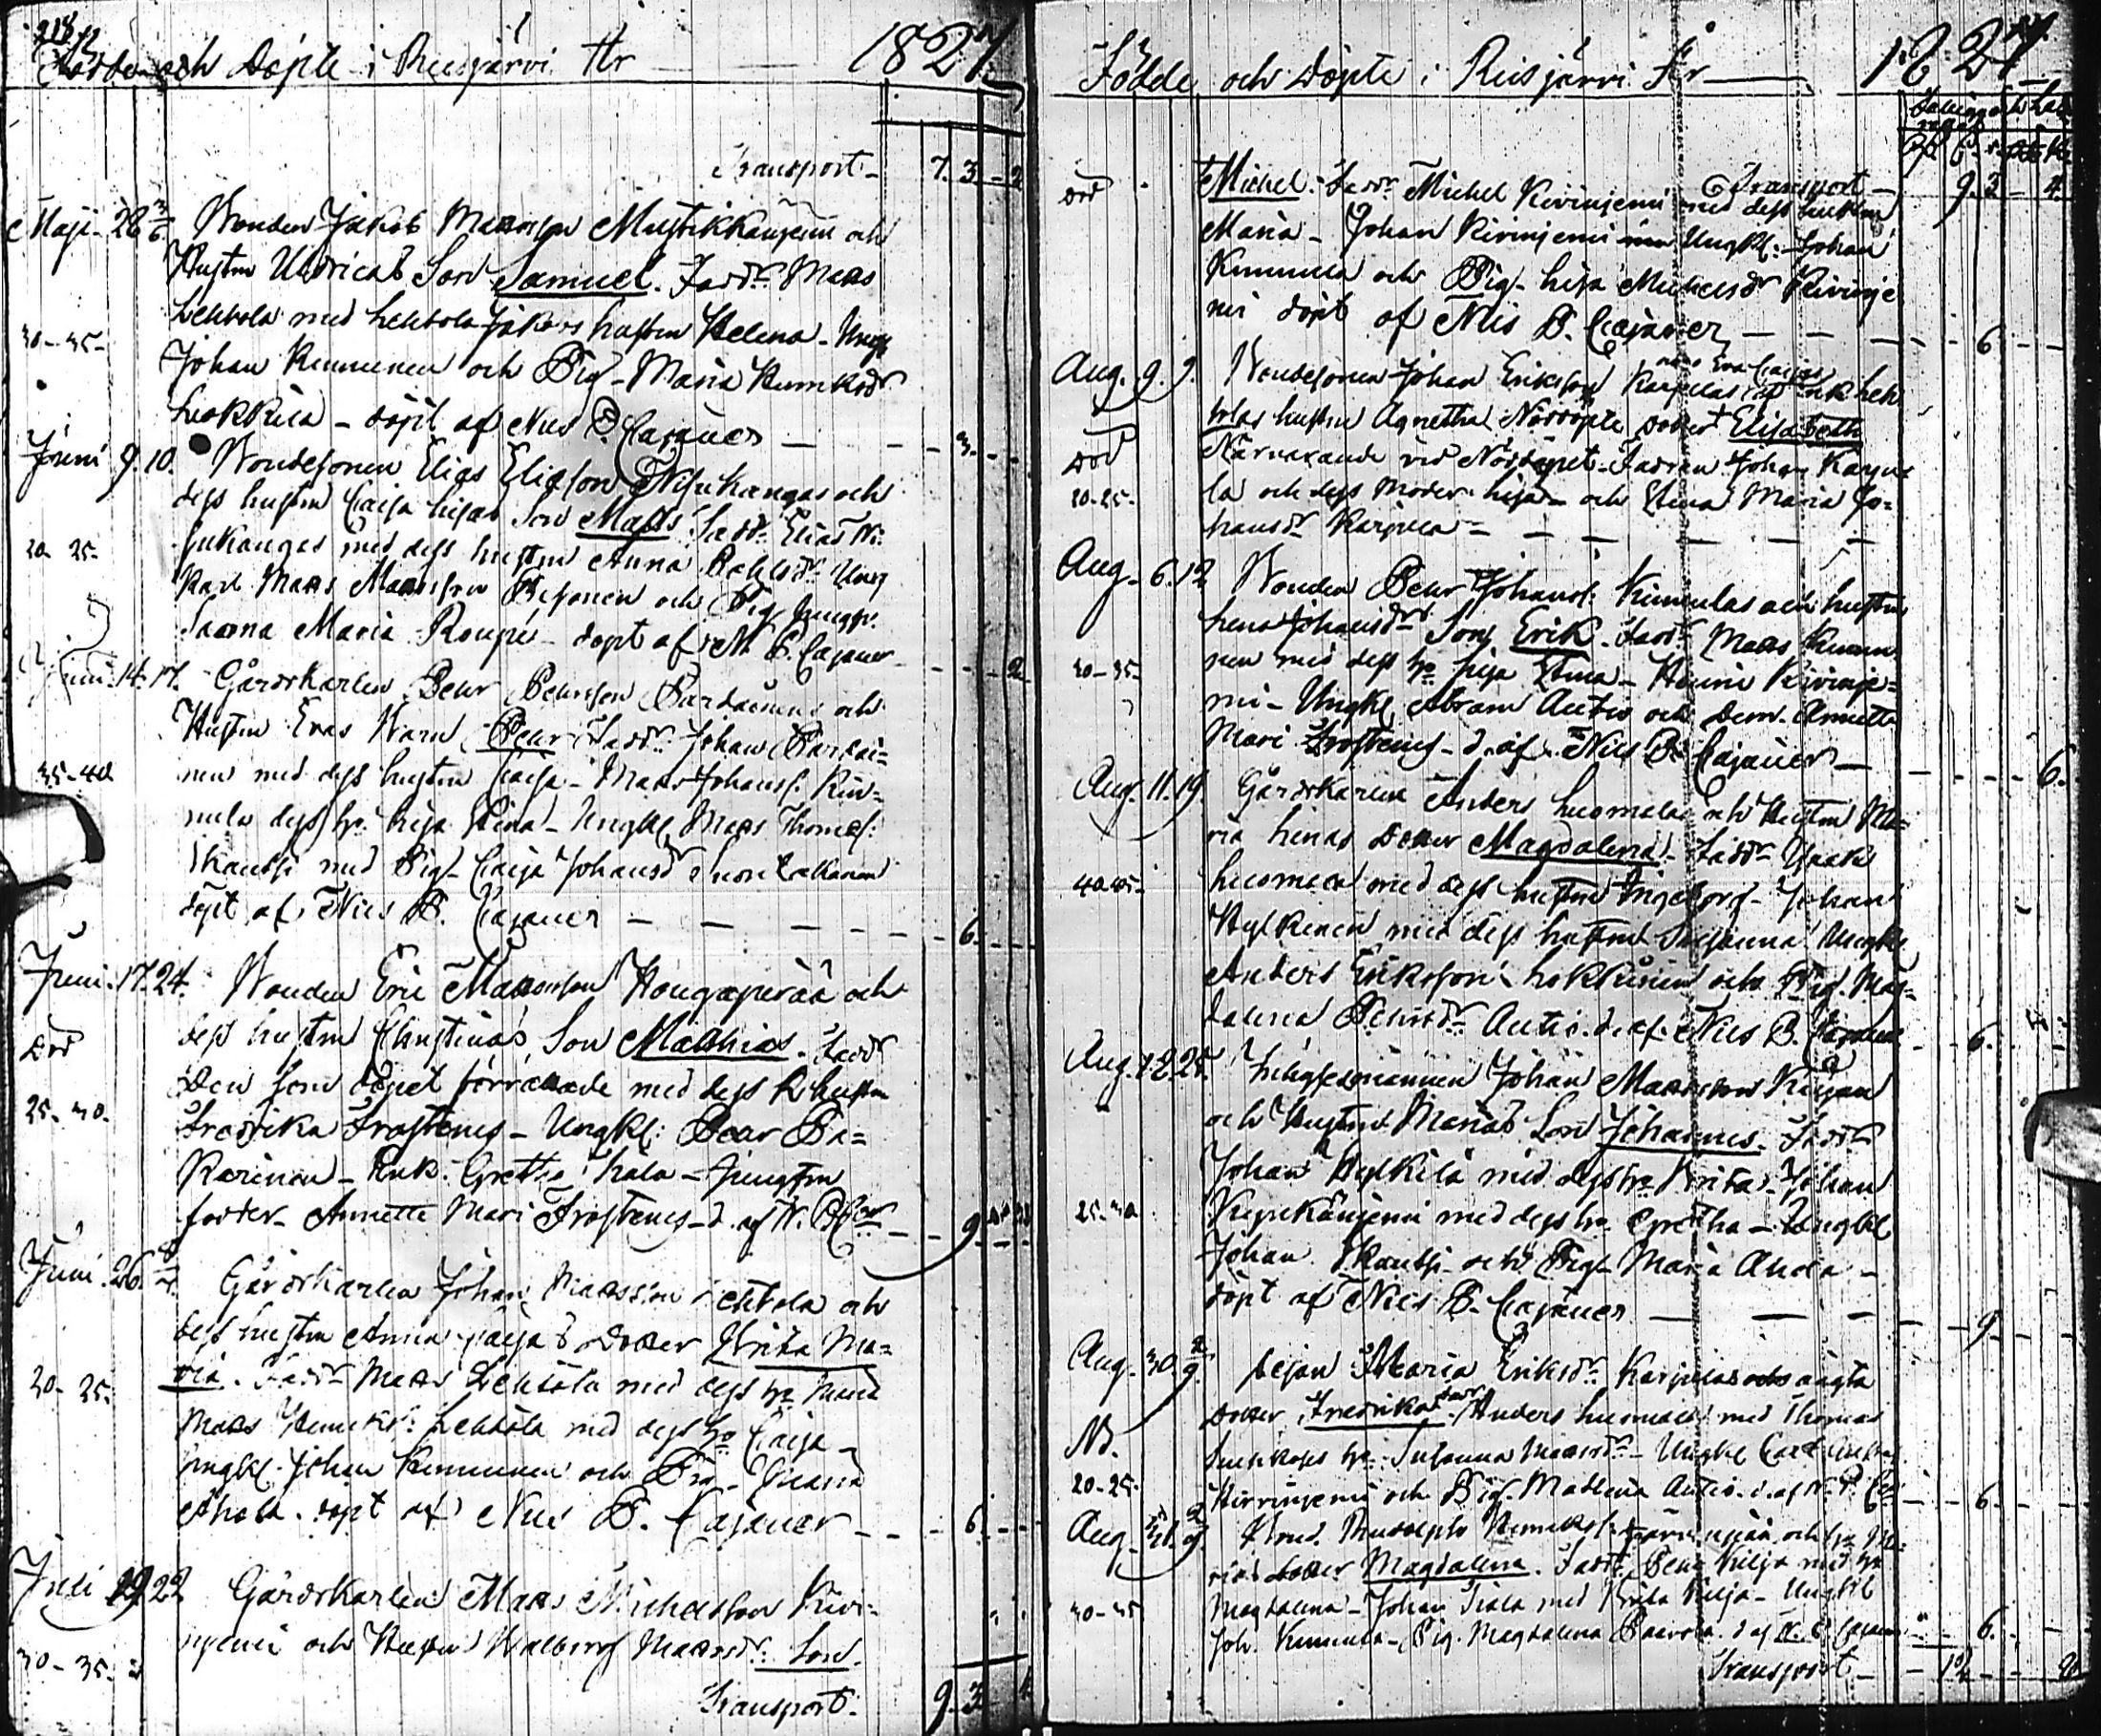 218
Födde och Döpte i Reisjärvi År 1827
Transport - 7. 3 - 2
Maji 28 3/6 Bonden Jakob Matsson Mustikkaniemi och
Hustru Ulricas Son Samuel. Fadd: Mats
30-35- Lehtola med Lehtola Jakobs hustru Helena - Ungk
Johan Kinnunen och Pig- Maria Henriksdr
Lokkila - döpt af Nils P. Cajaner - 3 -
Juni 9. 10. Bondesonen Elias Eliasson Nisukangas och
dess hustru Caisa Lisas Son Matts. Fadd: Elias Ni-
20 25- sukangas med dess hustru Anna Pehrsdr Ung
Karl Mats Matsson och Pig Jungfr.
Sanna Maria Roupé döpt af N P. Cajaner - 2
Juni 14. 17. Gårdskarlen Pehr Pehrsson Parkainens och
Hustru Evas Barn Pehr Fadd: Johan Parkai-
35-40 nen med dess hustru Caisa - Mats Johanss: Kin-
nula dess hu: Lisa Stina - Ungkl Mats Thomas:
Skantsi med Pig- Caisa Johansdr
döpt af Nils P. Cajaner - 6.
Juni 17. 24. Bonden Eric Matsson Haugaperää och
död dess hustru Christinas Son Matthias. Fadd:
Den som döpet förrättade med dess K hustru
25-30. Fredrika Frosterus - Ungkl: Pehr Pa-
karinen - Enk. Gretha hala - Jungfru
foster- Annette Mari Frosterus - d. af N. P. Cajr - 9
Juni 26. Gårdskarlen Johan Matsson Lehtola och
dess hustru Anna Caisas Dotter Brita Ma-
30-25- ria. Fadd: Mats Lehtola med dess hu
Mats Henriks: Lehtola med dess hu Caisa -
Ungkl. Johan Kinnunen och Pig - Maria
Ahola. döpt af Nils P. Cajaner - 6
Juli 19 22 Gårdskarlen Mats Michelsson Kivi-
30-35. niemi och Hustru Walborg Matsdr: Son.
Transport. 9. 3 4
Födde och Döpte i Reisjärvi År 1827
Transport - 9. 3 - 4
död Michel. Fadd: Michel Kiviniemi med dess hustru
Maria - Johan Kiviniemi Ungkl: Johan
Kinnula och Pig- Lisa Michelsdr Kivinie
mi döpt af Nils P. Cajaner - 6
Aug. 9. 9. Bondesonen Johan Eriksson Karjulas
hustru Agnetha Nöddöpte dotter Elisabeth
död Närvarande vid Nöddopet Fadren Johan Karju
20-25- la och dess moder Lisa - och Stina Maria Jo-
hansdr Karjula -
Aug. 6. 12 Bonden Pehr Johans: Kinnulas och hustru
Lena Johansdrs Son Erik. Fadd: Mats Kinnu
30-35- nen med dess hu Lisa Stina - Kivinie-
mi - Ungkl Abram Autio och Dem. Annette
Mari Frosterus - d. af Nils P. Cajaner - 6.
Aug. 11. 19. Gårdskarlen Anders Luomala och Hustru Ma-
ria Lenas Dotter Magdalena - Fadd: Isaak
40-45- Luomala med dess hustru Ingeborg - Johan
Hylkinen med dess hustru Susanna Ungkl
Anders Eriksson Lokkinen och Pig. Mag-
dalena Pehrsdr Autio. d. af Nils P. Cajaner - 6.
Aug. 12. 25. Inhysesmannen Johan Matsson
och Hustru Marias Son Johannes. Fadd:
Johan Hylkilä med dess hu Brita - Johan
25-30 med dess hu Gretha - Ungkl
Johan Skantsi och Pig- Maria Ahola -
döpt af Nils P. Cajaner - 9 -
Aug. 30. 2/9 Pigan Maria Eriksdr Karjulas oägta
Dotter Fredrika Fadd: Anders Luomala med Thomas
No. hu: Susanna Matsdr - Ungkl Carl
20-25- Hirviniemi och Pig. Madlena Autio. d. af N. P. Caj: - 6 -
Aug. 31. 2/9 Bond. Rudolph Henrikss: och hu Ma-
rias dotter Magdalena. Fadd: Pehr Kilja med hu
30-35 Magdalena - Johan med Brita Kilja - Ungkl
Joh. Kinnula - Pig. Magdalena Paavola. d af N. P. Cajaner - 6. -
Transport - 12 -